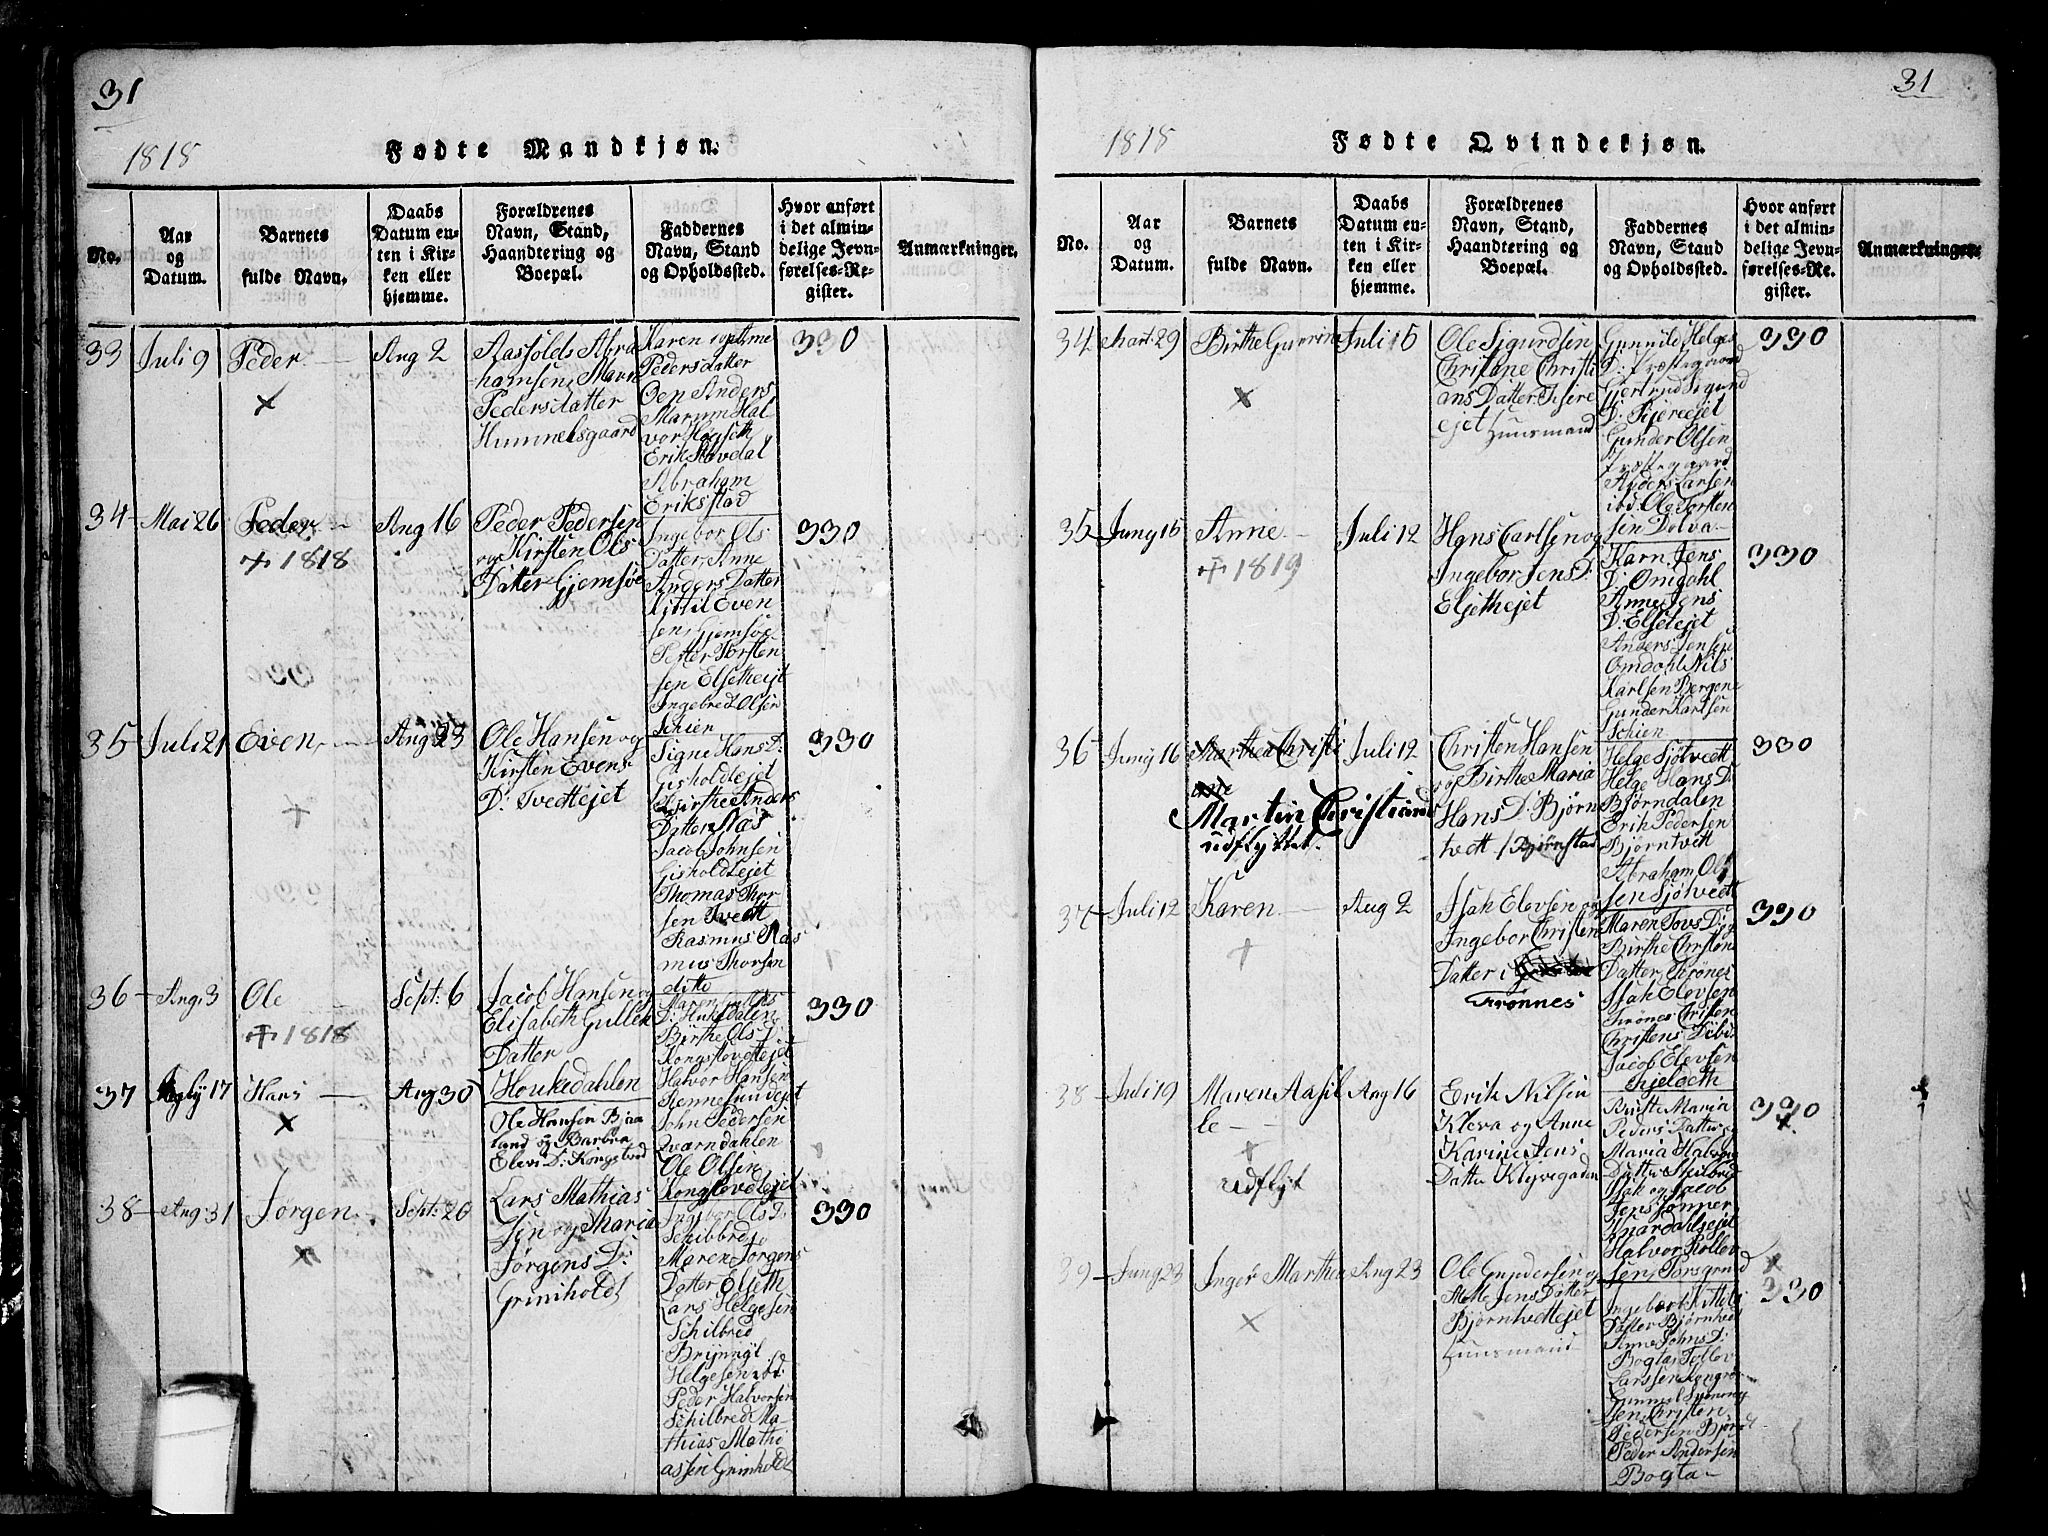 31
1818
Fødte Mandkjøn.
No.
Aar
og
Datum.
Barnets
fulde Navn.
Daabs
Datum en-
ten i Kir-
ken eller
hjemme.
Forældrenes
Navn, Stand,
Haandtering og
Boepæl.
Faddernes
Navn, Stand
og Opholdssted.
Hvor anført
i det almin-
delige Jevn-
førelses-Re-
gister.
Anmærkninger.
33
Juli 9
Peder
×
Aug 2
Aasfolds Abra
hamsen, Maren
Pedersdatter
Hummelsgaard
Karen
Pedersdatter
Oen Anders
Marum Hal
vor Høgseth
Erik Stavdal
Abraham
Eriksstad
330
34
Mai 26
Peder
+ 1818
Aug 16
Peder Pedersen
og Kirsten Ols
Datter Gjemsøe
Ingebor Ols
Datter, Anne
Anders Datter
Kittil Even
sen, Gjemsøe
Petter Torsten
sen Elsetheiet
Ingebred Olsen
Schien
330
35
Juli 21
Even
Aug 23
Ole Hansen og
Kirsten Evens
D: Tvedtejet
Signe Hans D:
Gisholdtejet
Birthe Anders
Datter Næs
Jacob Johnsen
Gisholdtejet
Thomas Thor
sen Tvedt
Rasmus Ras
mus Thorsen
ditto
330
36
Aug. 3
Ole
+ 1818
Sept: 6
Jacob Hansen og
Elisabeth Gullek
Datter
Houkedahlen
Maren
D: Hukedalen
Birthe Ols D:
Kongstovdtejet
Halvor Hansen
Rennesundejet
John Pedersen
Qværndahlen
Ole Olsen
Kongtovdtejet
330
37
17
Hans
×
Aug 30
Ole Hansen Bjaa
land og Barbra
Elevs D: Kongstvd
38
Aug: 31
Jørgen
×
Sept: 20
Lars Mathias
sen og Maria
Jørgens D:
Griniholdt
Ingebor Ols D:
Schilbred
Maren Jørgens
Datter Elseth
Lars Helgesen
Schilbred
Brynnyl
Helgesen ibd.
Peder Halvorsen
Schilbred Ma-
thias Mathi
assen Grinholdt
330
31
1818
Fødte Qvindekjøn.
No.
Aar
og
Datum.
Barnets
fulde Navn.
Daabs
Datum en-
ten i Kir-
ken eller
hjemme.
Forældrenes
Navn, Stand,
Haandtering og
Boepæl.
Faddernes
Navn, Stand
og Opholdssted.
Hvor anført
i det almin-
delige Jevn-
førelses-Re-
gister.
Anmærkninger.
34
Mart: 29
Birthe Gurine
×
Juli 15
Ole Sigurdsen
Christane Christi
ans Datter Kjere
ejet Huusmand
Gunnild Helges
D: Præstegaard
Gjertrud Sigurd
D: Kjereejet
Gunder Olsen
Præstegaard
Anders Larsen
ibd. Ole Torsten
sen Dolva
330
35
Juny 15
Anne
+ 1819
Juli 12
Hans Carlsen og
Ingebor Jens D:
Elsethejet
Karn Jens
D: Omdahl
Anne Jens
D: Elsetejet
Anders Jensen
Omdahl Nils
Karlsen Bergene
Gunder Karlsen
Schien
330
36
Juny 16
Marthea Christi
ane
Martin Christian
udflyttet.
Juli 12
Christen Hansen
og Birthe Maria
Hans D: Bjørn
tvedt / Bjørnstad
Helge Sjøtvedt
Helge Hans D:
Bjørndalen
Erik Pedersen
Bjørntvedt
Abraham Ol
sen Sjøtvedt
330
37
Juli 12
Karen
+
Aug 2
Isak Elevsen og
Ingebor Christen
Datter i
Trønnes
Maren Tovs D:
Birthe Christen
Datter, Trønes
Isak Elevsen
Trønes Christen
Christens
Jacob Elevsen
330
38
Juli 19
Maren Aasil
le
+
udflyt
Aug 16
Erik Nilsen
Kleva og Anne
Karine Jens
Datter Klevegaden
Birthe Maria
Peders Datter
Maria Halvors
Datter
Isak og Jacob
Jens sønner
Knardahlsejet
Halvor Rollev
sen, Porsgrund
330
×
39
Juny 23
Inger Marthea
×
Aug 23
Ole Gundersen og
Mette Jens Datter
Bjørntvedtejet
Huusmand
Ingebor Kittils
Datter Bjørntved
Anne Johns D:
Bogta, Tollev
Larssen
Gummel Simony
sen, Christen
Pedersen Bjørnt
Peder Andersen
Bogta
×
330